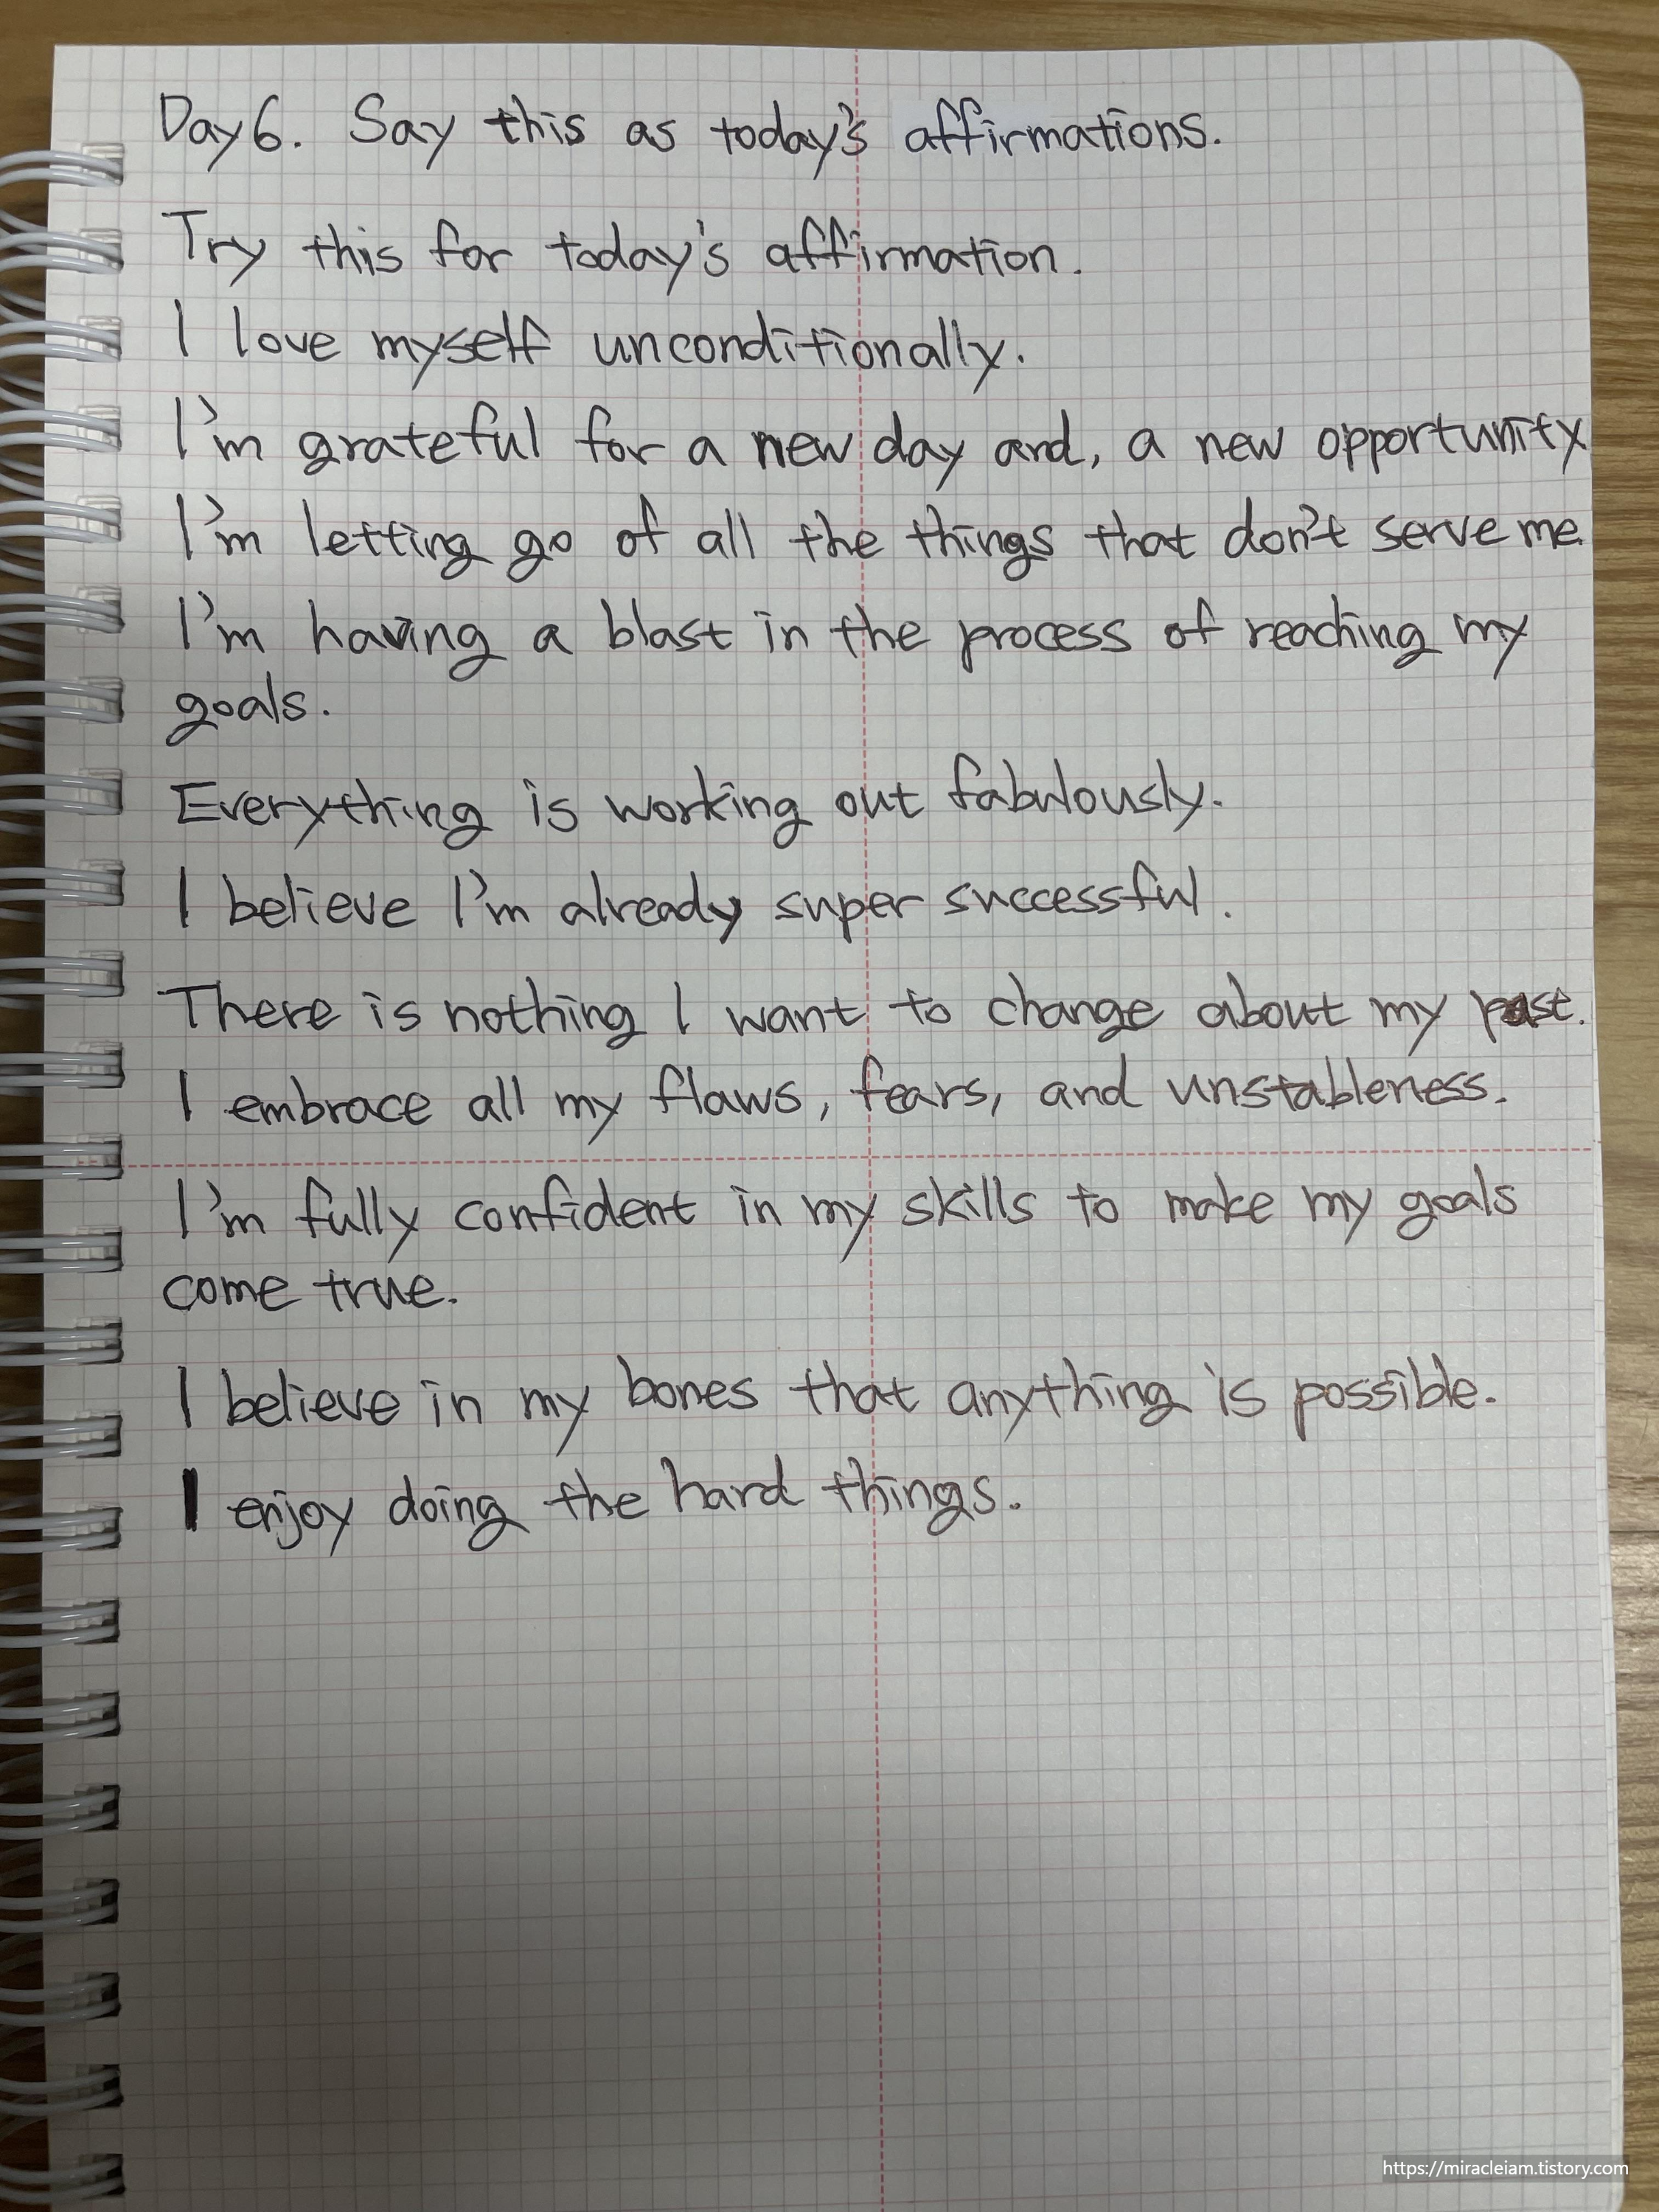 Day 6. Say this as today's affirmations.
Try this for today's affirmation.
I love myself unconditionally.
I'm grateful for a new day and, a new opportunity
I'm letting go of all the things that don't serve me.
I'm having a blast in the process of reaching my
goals.
Everything is working out fabulously.
I believe I'm already super successful.
There is nothing I want to change about my past.
I embrace all my flaws, fears, and unstableness.
I'm fully confident in my skills to make my goals
come true.
I believe in my bones that anything is possible.
I enjoy doing the hard things.
https://miracleiam.tistory.com